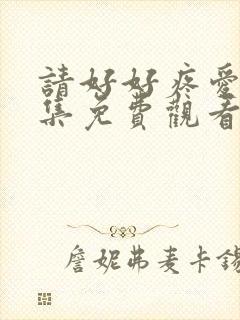 請好好疼愛
集免費觀看
詹妮弗麦卡錫